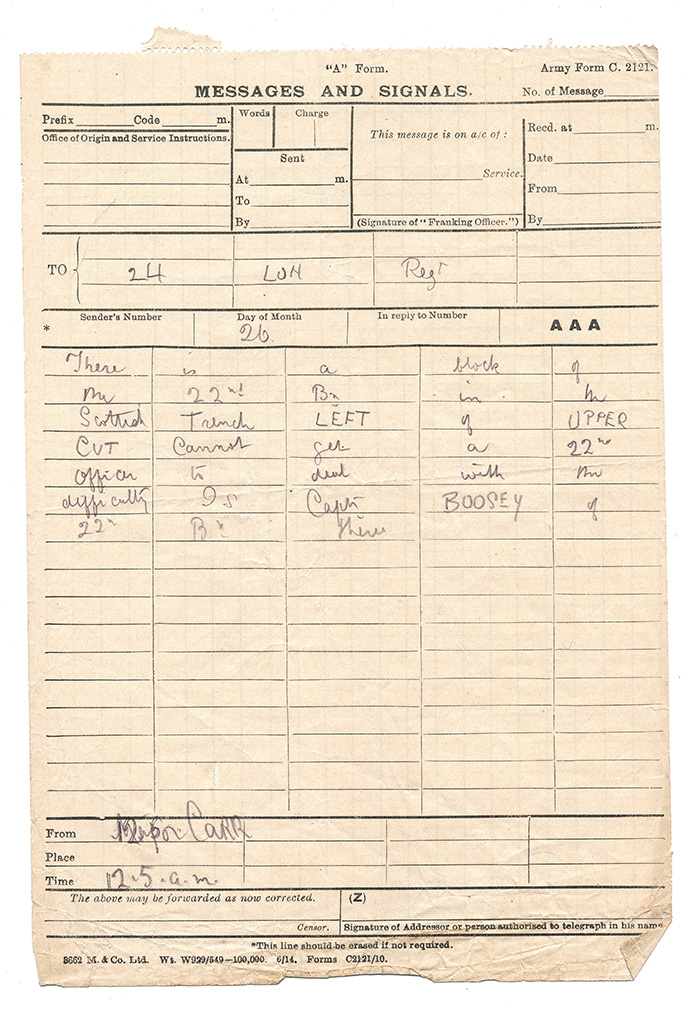 "A" Form. Army Form C. 2121.
MESSAGES AND SIGNALS. No. of Message
Prefix Code m. Words Charge This message is on a/c of: Recd. at m.
Office of Origin and Service Instructions.
Sent Date
At m. Service. From
To
By (Signature of "Franking Officer.") By
TO 24 LON Regt
Sender's Number Day of Month In reply to Number
* 26 AAA
There is a block of
the 22nd Bn in the
Scottish Trench LEFT of UPPER
CUT Cannot get a 22nd
officer to deal with the
difficulty Is Capt BOOSEY of
22n Bn there
From Major CARR
Place
Time 12.5.a.m.
The above may be forwarded as now corrected. (Z)
Censor. Signature of Addressor or person authorised to telegraph in his name
*This line should be erased if not required.
8662 M. & Co. Ltd. Wt. W929/549—100,000. 6/14. Forms C2121/10.